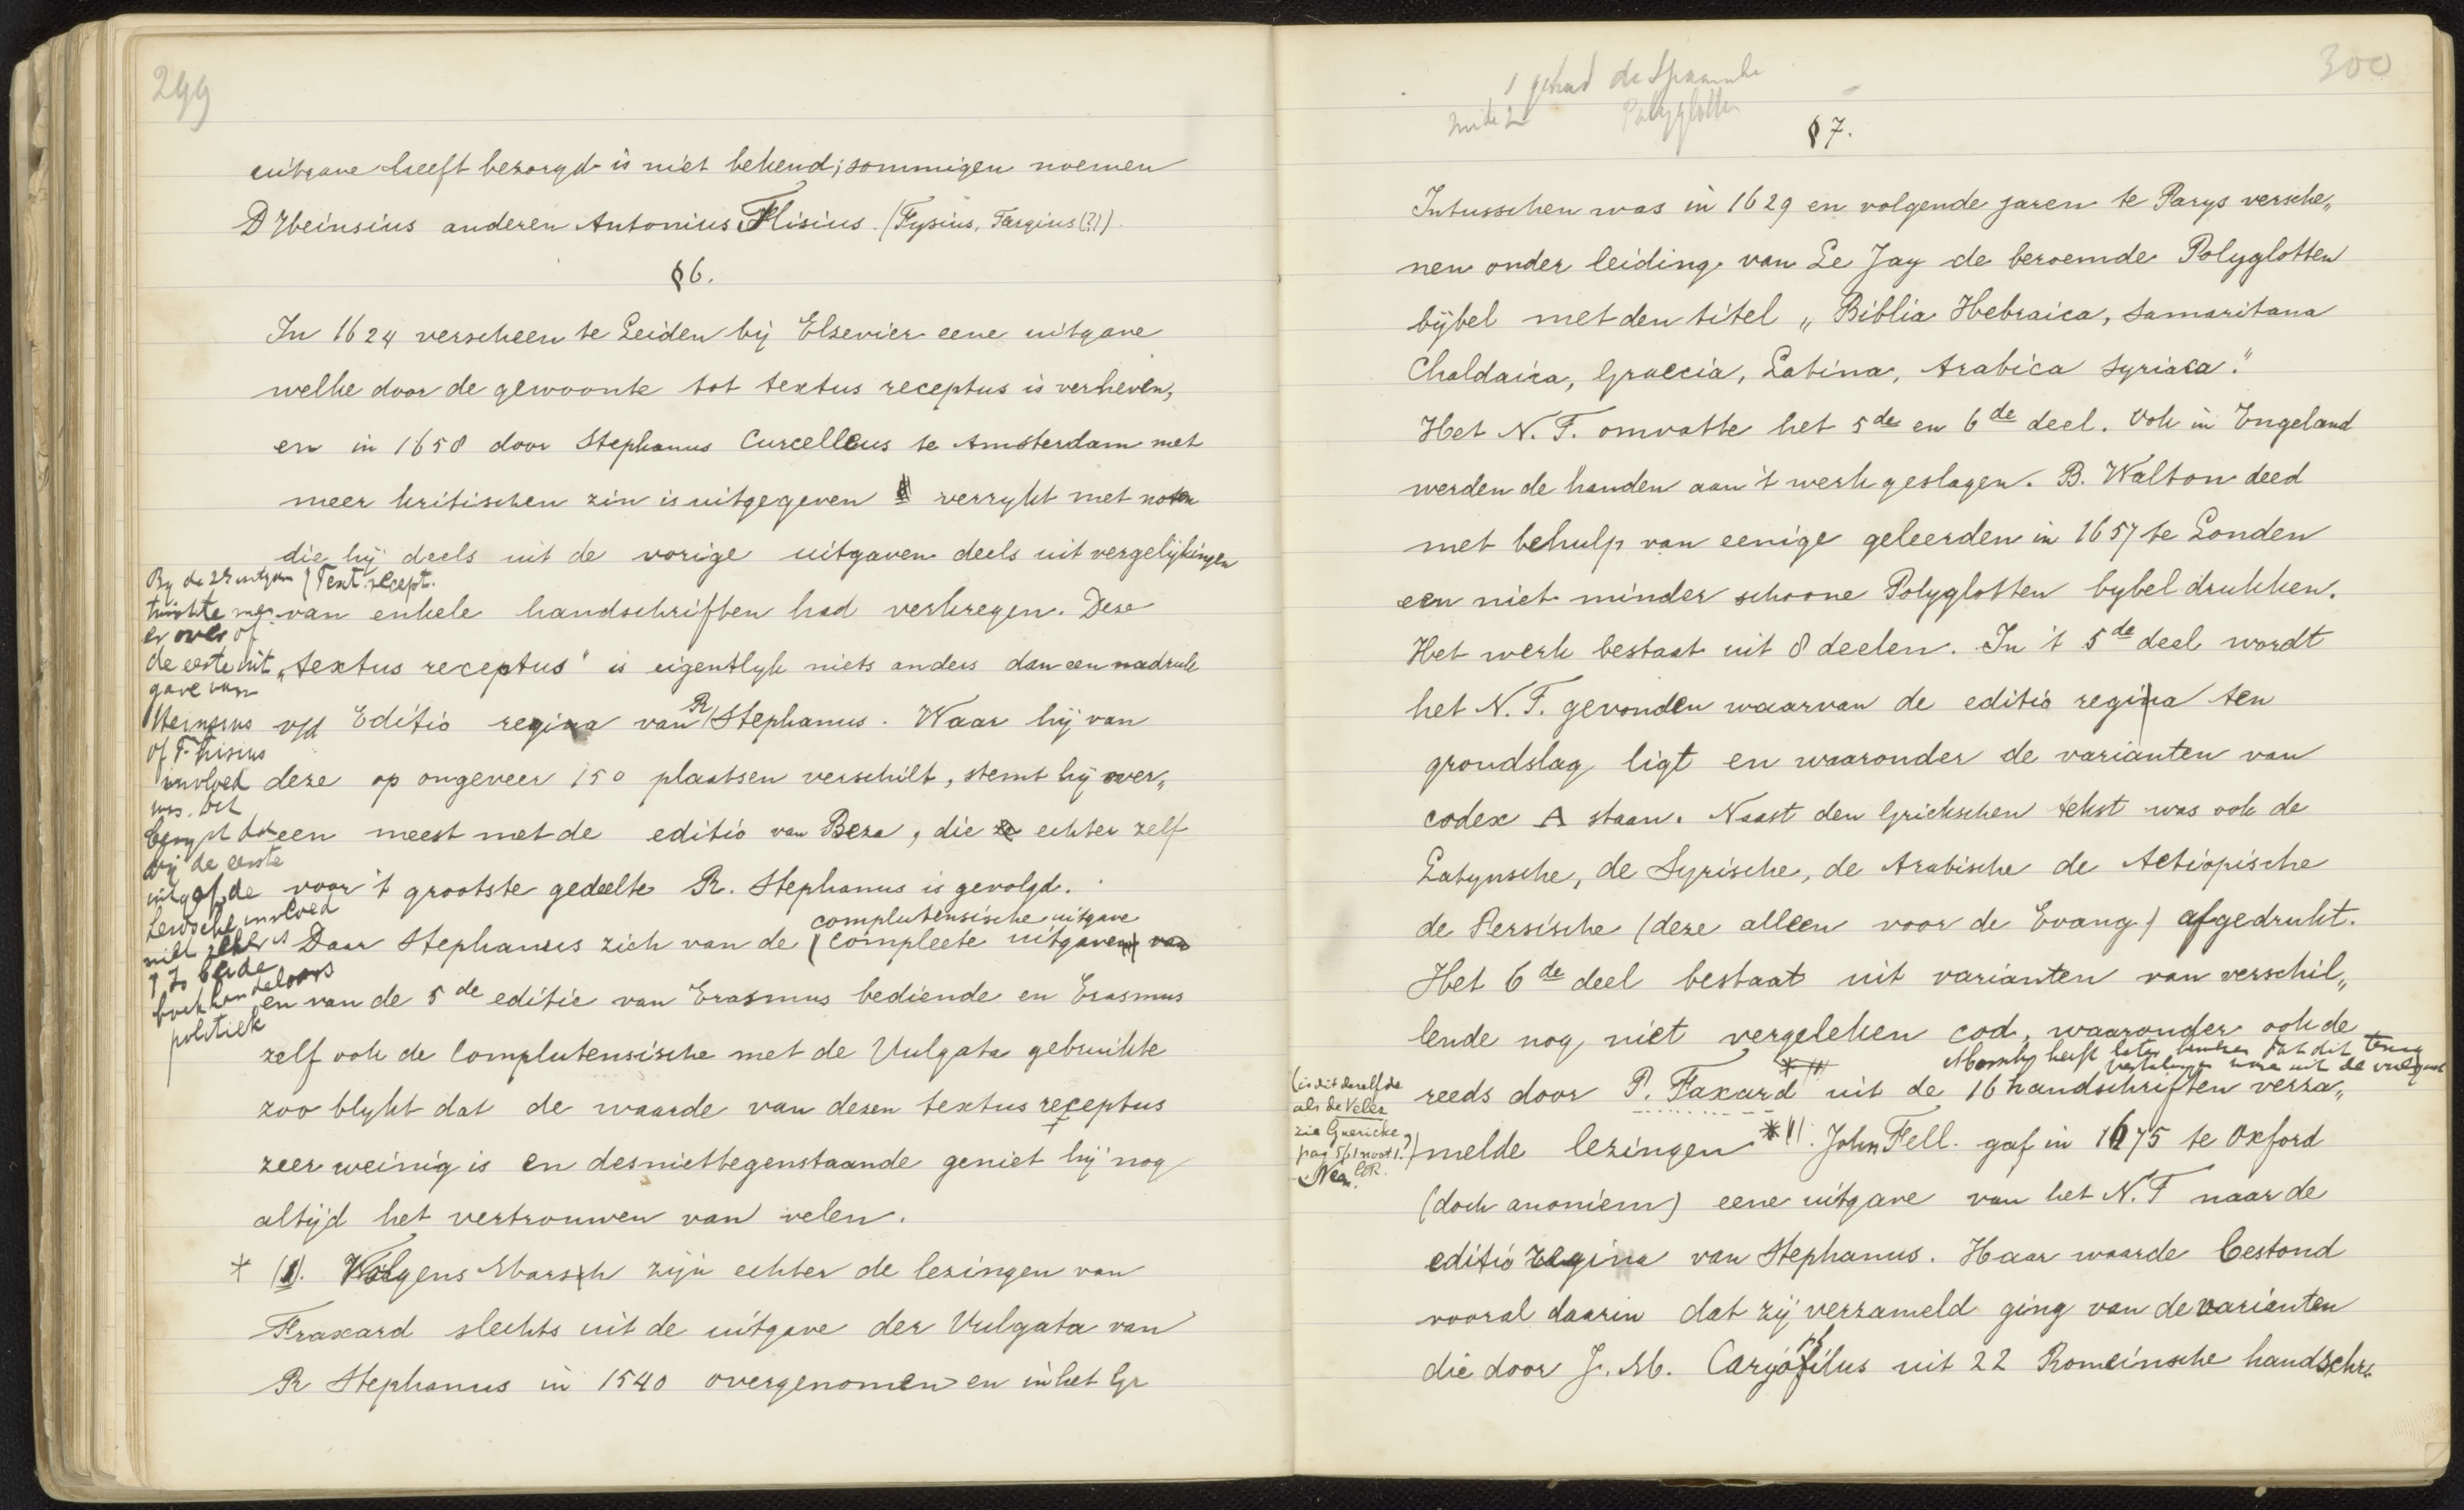 299
uitgave heeft bezorgd is niet bekend; sommigen noemen
D Heinsius anderen Antonius Thisius. (Tysius, Targius(?)).
§6.
In 1624 verscheen te Leiden bij Elsevier eene uitgave
welke door de gewoonte tot textus receptus is verheven,
en in 1658 door Stephanus Curcelleus te Amsterdam met
meer kritischen zin is uitgegeven & verrykt met noten
die hij deels uit de vorige uitgaven deels uit vergelijkingen
van enkele handschriften had verkregen. Deze
„textus receptus" is eigentlyk niets anders dan een nadruk
v/d Editio regina van R Stephanus. Waar hij van
deze op ongeveer 150 plaatsen verschilt, stemt hij over„
een meest met de editio van Beza, die ze echter zelf
voor 't grootste gedeelte R. Stephanus is gevolgd.
complutensische uitgave
Daar Stephanus zich van de (compleete uitgaven) van
en van de 5de editie van Erasmus bediende en Erasmus
zelf ook de Complutensische met de Vulgata gebruikte
zoo blykt dat de waarde van dezen textus receptus
zeer weinig is en desniettegenstaande geniet hij nog
altijd het vertrouwen van velen.
* (1). Volgens Marsch zijn echter de lezingen van
Fraxard slechts uit de uitgave der Vulgata van
R Stephanus in 1540 overgenomen en in het Gr
By de 2e uitgave (Text. recept.
twistte men
er over of
de eerste uit
gave van
Heinsius
of T-hisius
invloed
was. Het
bewyst dat
bij de eerste
uitgaf de
Leidsche invloed
niet zeker is
? Is beide
boekhandelaars
politiek
300
1 gehad de Spaansche
Polyglotten
§7.
Intusschen was in 1629 en volgende jaren te Parys versche„
nen onder leiding van Le Jay de beroemde Polyglotten
bijbel met den titel „Biblia Hebraica, Samaritana
Chaldaica, Graecia, Latina, Arabica Syriaca."
Het N. T. omvatte het 5de en 6de deel. Ook in Engeland
werden de handen aan 't werk geslagen. B. Walton deed
met behulp van eenige geleerden in 1657 te Londen
een niet minder schoone Polyglotten bybel drukken.
Het werk bestaat uit 8 deelen. In 't 5de deel wordt
het N. T. gevonden waarvan de editio regina ten
grondslag ligt en waaronder de varianten van
codex A staan. Naast den Griekschen tekst was ook de
Latynsche, de Syrische, de Arabische de Aetiopische
de Persische (deze alleen voor de Evang.) afgedrukt.
Het 6de deel bestaat uit varianten van verschil„
lende nog niet vergeleken cod, waaronder ook de
reeds door P. Faxard uit de 16 handschriften verza„
melde lezingen *). John Fell. gaf in 1675 te Oxford
(doch anoniem) eene uitgave van het N. T naar de
editio regina van Stephanus. Haar waarde bestond
vooral daarin dat zij verzameld ging van de varianten
die door J. M. Caryophilus uit 22 Romeinsche handschr„
(is dit dezelfde
als de Velez
zie Guericke
pag 561 noot 1.?)
Neen. GR.